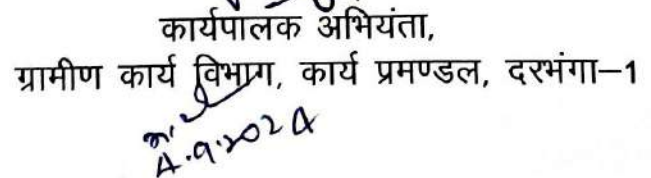 कार्यपालक अभियंता,
ग्रामीण कार्य विभाग, कार्य प्रमण्डल, दरभंगा–1
4.9.2024